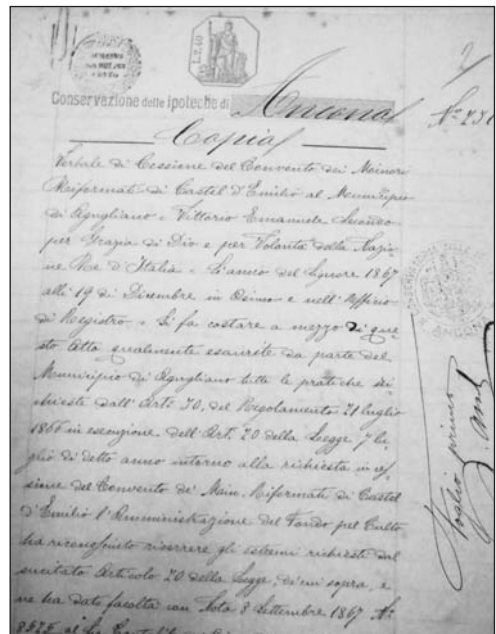 L. 2,40
2
Conservazione delle ipoteche di Ancona
Copia
Verbale di Cessione del Convento dei Minori
Riformati di Castel d'Emilio al Municipio
di Agugliano - Vittorio Emanuele Secondo
per Grazia di Dio e per Volontà della Nazio
ne Re d'Italia - L'anno del Signore 1867
alli 19 di Dicembre in Osimo e nell'Ufficio
di Registro - Si fa costare a mezzo di que
sto Atto qualmente esaurite da parte del
Municipio di Agugliano tutte le pratiche ri
chieste dall'Arto 30, del Regolamento 21 luglio
1866 in esecuzione dell'Art. 20 della Legge 7 lu
glio di detto anno intorno alla richiesta in ces
sione del Convento de' Min. Riformati di Castel
d'Emilio l'Amministrazione del Fondo pel Culto
ha riconosciuto ricorrere gli estremi richiesti dal
sucitato Articolo 20 della Legge, di cui sopra, e
ne ha dato facoltà con Nota 8 Settembre 1867 No:
8525 al
Foglio primo